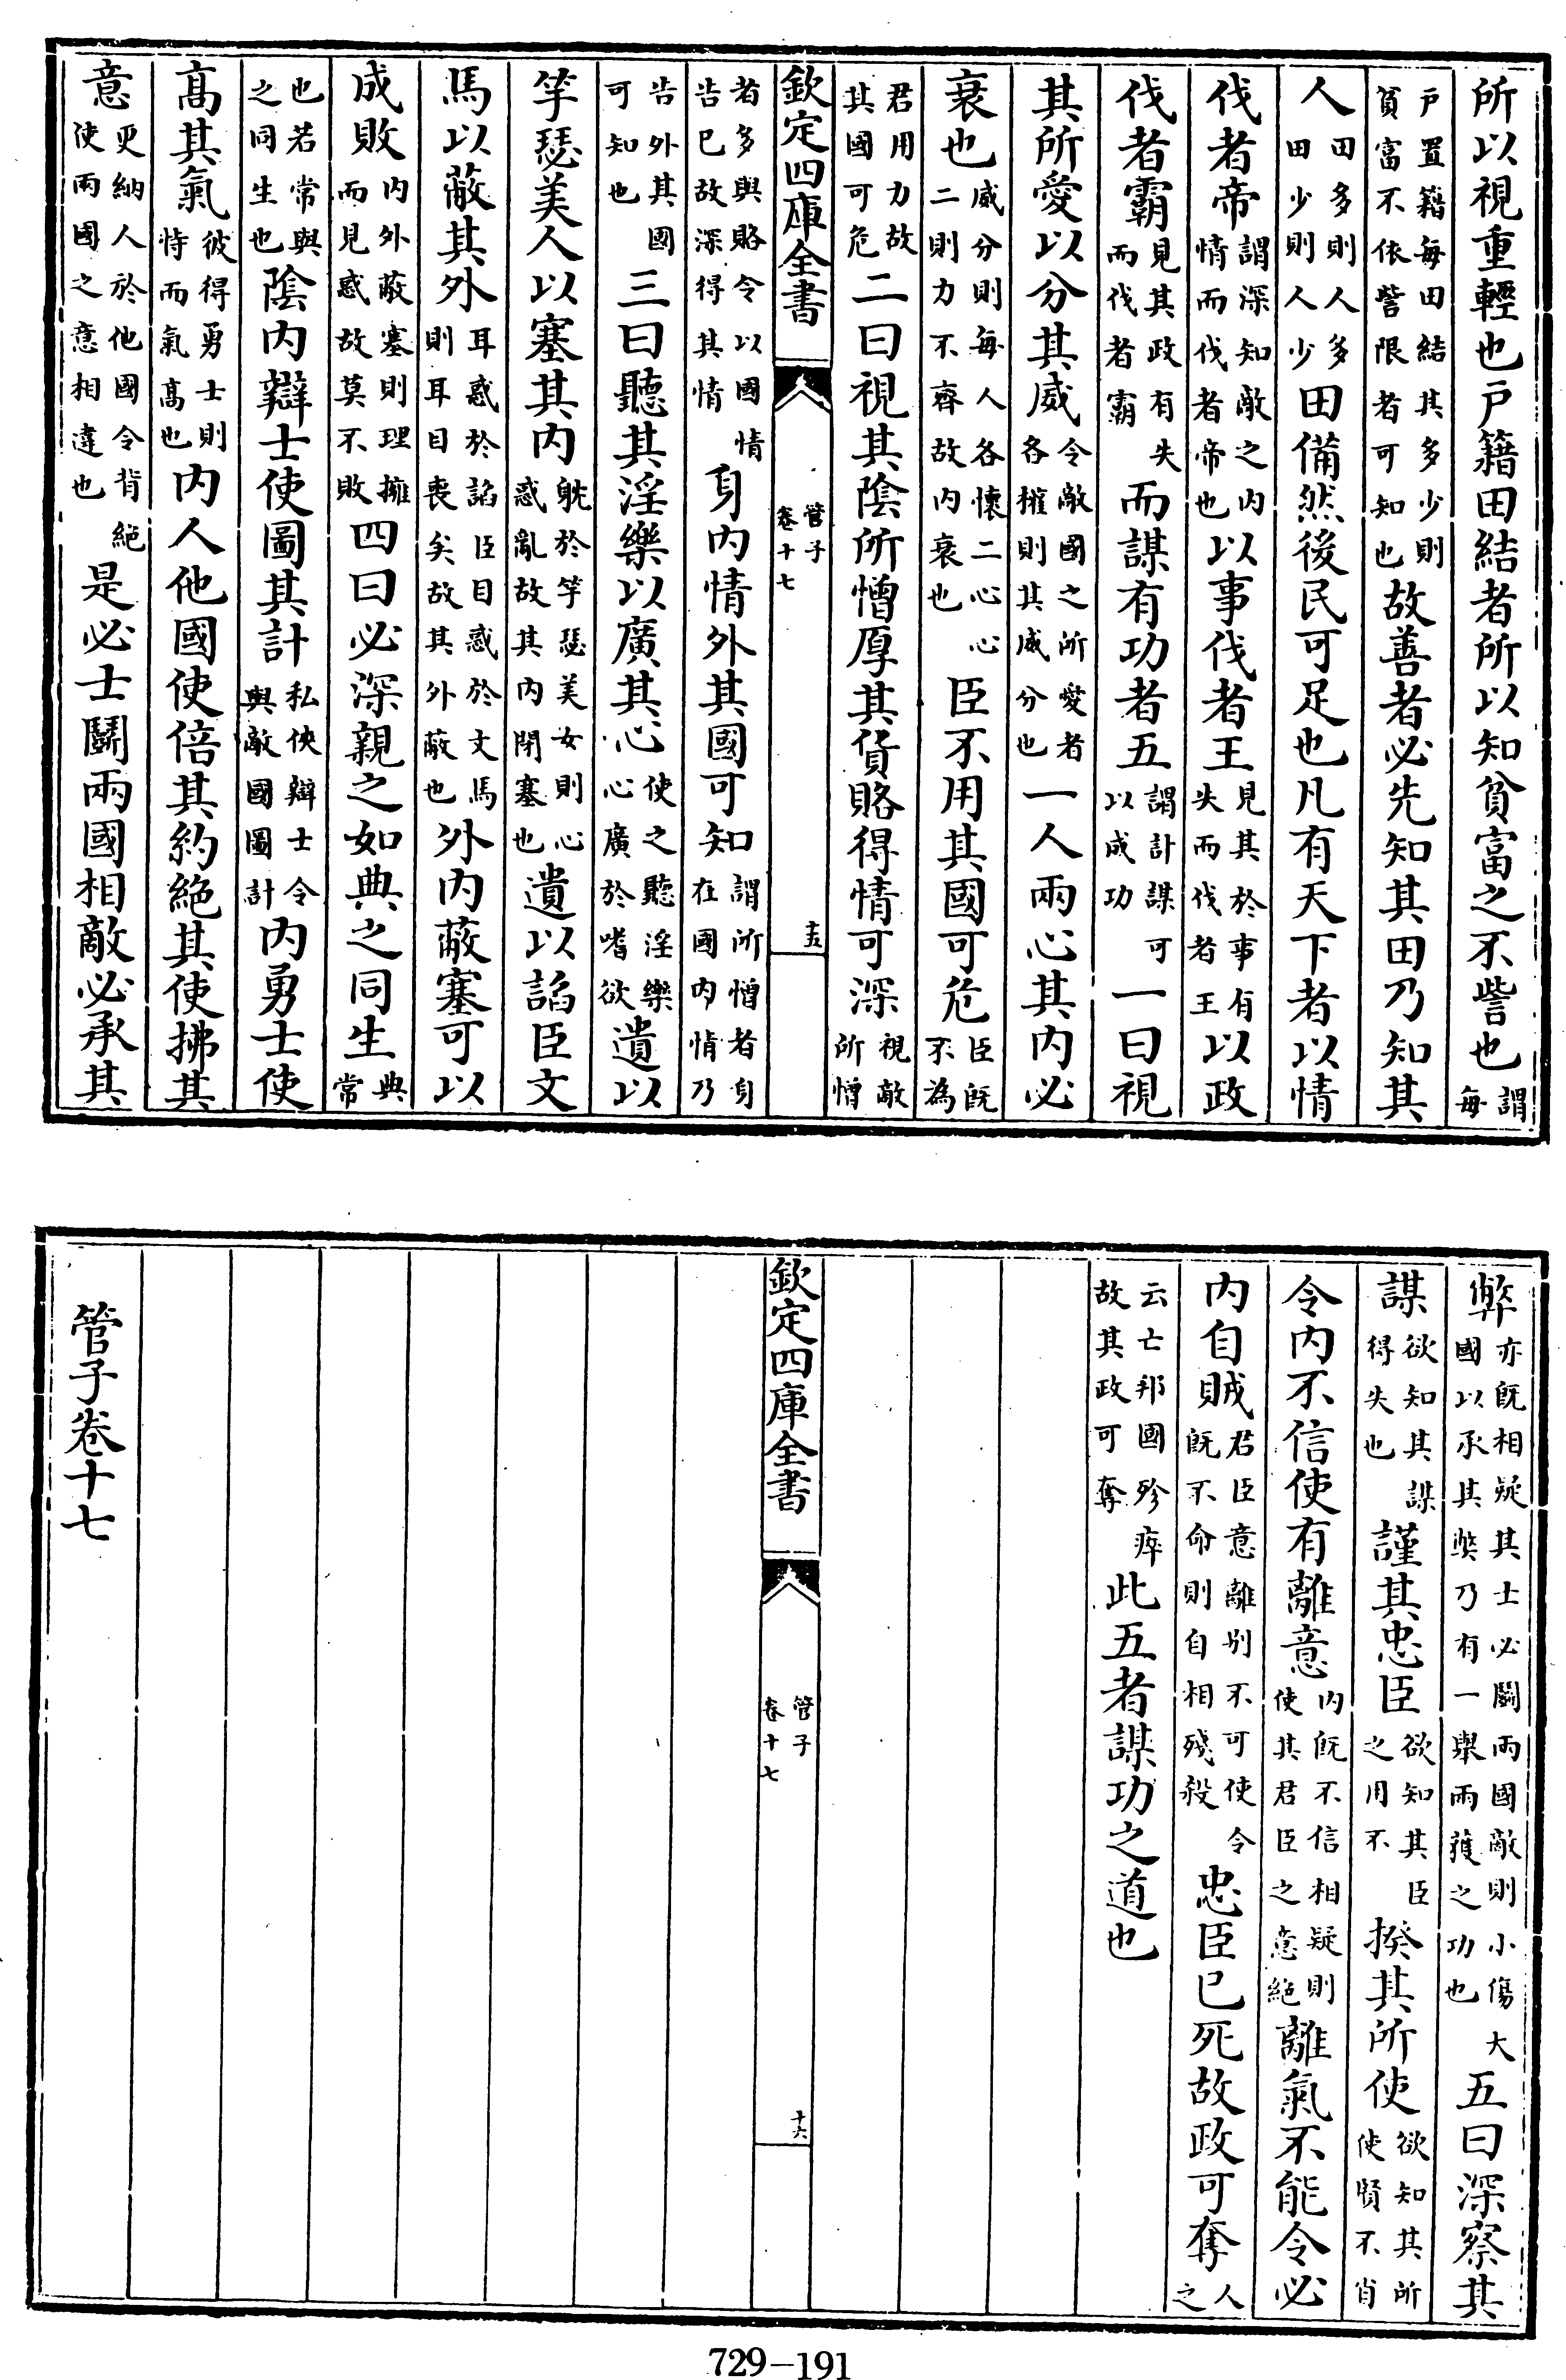 所以視重輕也戸籍田結者所以知貧富之不訾也謂每
戸置籍每田結其多少則貧富不依訾限者可知也故善者必先知其田乃知其
人田多則人多田少則人少田備然後民可足也凡有天下者以情
伐者帝謂深知敵之内情而伐者帝也以事伐者王見其於事有失而伐者王以政
伐者霸見其政有失而伐者霸而謀有功者五謂計謀可以成功一曰視
其所愛以分其威令敵國之所愛者各權則其威分也一人兩心其内必
衰也威分則每人各懷二心心二則力不齊故内衰也臣不用其國可危臣既不為
君用力故其國可危二曰視其陰所憎厚其貨賂得情可深視敵所憎
欽定四庫全書
管子
卷十七
十五
者多與賂令以國情告已故深得其情身内情外其國可知謂所憎者身在國内情乃
告外其國可知也三曰聽其淫樂以廣其心使之聽淫樂心廣於嗜欲遺以
竽瑟美人以塞其内躭於竽瑟美女則心惑亂故其内閉塞也遺以諂臣文
馬以蔽其外耳惑於諂臣目惑於文馬則耳目喪矣故其外蔽也外内蔽塞可以
成敗内外蔽塞則理擁而見惑故莫不敗四曰必深親之如典之同生典常
也若常與之同生也陰内辯士使圖其計私使辯士令與敵國圖計内勇士使
髙其氣彼得勇士則恃而氣髙也内人他國使倍其約絶其使拂其
意更納人於他國令背絕使兩國之意相違也是必士鬭兩國相敵必承其
弊亦既相疑其士必鬭兩國敵則小傷大國以承其獘乃有一舉兩獲之功也五曰深察其
謀欲知其謀得失也謹其忠臣欲知其臣之用不揆其所使欲知其所使賢不肖
令内不信使有離意内既不信相疑則使其君臣之意絕離氣不能令必
内自賊君臣意離别不可使令既不命則自相殘殺忠臣已死故政可奪人之
云亡邦國殄瘁故其政可奪此五者謀功之道也
欽定四庫全書
管子
卷十七
十六
管子卷十七
729-191